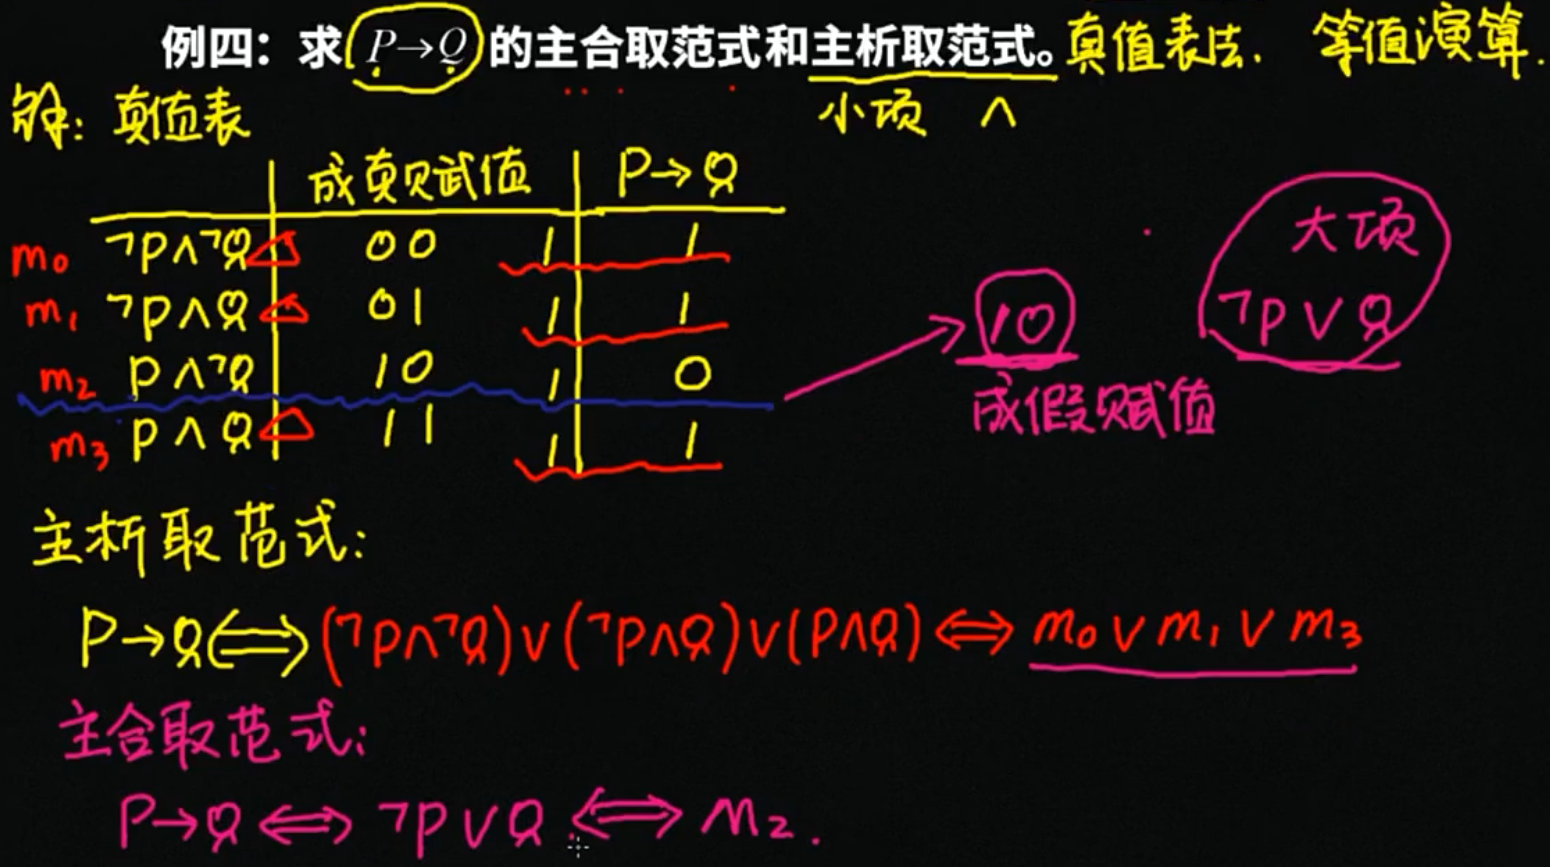 例四：求 P→Q 的主合取范式和主析取范式。真值表法. 等值演算.
小项 ∧
解: 真值表
成真赋值 P→Q
m₀ ¬P∧¬Q 00 1 1
m₁ ¬P∧Q 01 1 1
m₂ P∧¬Q 10 1 0
m₃ P∧Q 11 1 1
10
成假赋值
大项
¬P∨Q
主析取范式:
P→Q⇔(¬P∧¬Q)∨(¬P∧Q)∨(P∧Q)⇔m₀∨m₁∨m₃
主合取范式:
P→Q⇔¬P∨Q⇔M₂.